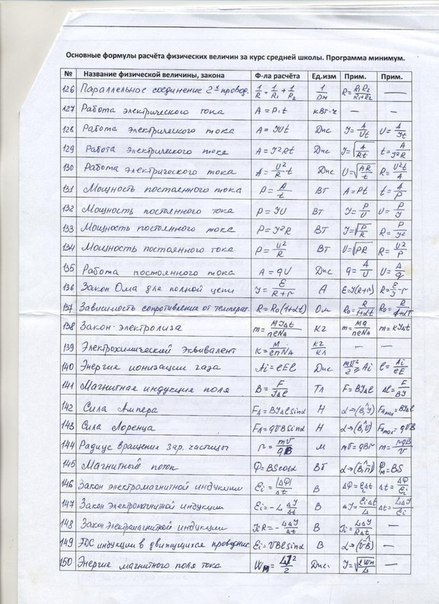 Основные формулы расчёта физических величин за курс средней школы. Программа минимум.
№ Название физической величины, закона Ф-ла расчёта Ед.изм Прим. Прим.
126 Параллельное соединение 2х провод. 1/R = 1/R₁ + 1/R₂ 1/Ом R = R₁R₂/R₁+R₂ —
127 Работа электрического тока A = P·t кВт·ч — —
128 Работа электрического тока A = IUt Дж I = A/Ut U = A/It
129 Работа электрического тока A = I²Rt Дж I = √A/Rt t = A/I²R
130 Работа электрического тока A = U²/R · t Дж U = √AR/t R = U²t/A
131 Мощность постоянного тока P = A/t Вт A = Pt t = A/P
132 Мощность постоянного тока P = IU Вт I = P/U U = P/I
133 Мощность постоянного тока P = I²R Вт I = √P/R R = P/I²
134 Мощность постоянного тока P = U²/R Вт U = √PR R = U²/P
135 Работа постоянного тока A = qU Дж q = A/U U = A/q
136 Закон Ома для полной цепи I = E/R+r А E = I(R+r) R = E/I - r
137 Зависимость сопротивления от температ. R = R₀(1+αt) Ом
138 Закон электролиза Кг
139 Электрохимический эквивалент кг/Кл — —
140 Энергия ионизации газа Ai = eEl Дж mv²/2 ≥ Ai l = Ai/eE
141 Магнитная индукция поля Тл
142 Сила Ампера Н
143 Сила Лоренца Н
144 Радиус вращения зар. частицы r = mv/qB М
145 Магнитный поток Ф = BS cosα Вб
146 Закон электромагнитной индукции В
147 Закон электромагнитной индукции В
148 Закон электромагнитной индукции В —
149 ЭДС индукции в движущихся проводник. Ei = VBl sinα В —
150 Энергия магнитного поля тока Wм = LI²/2 Дж —